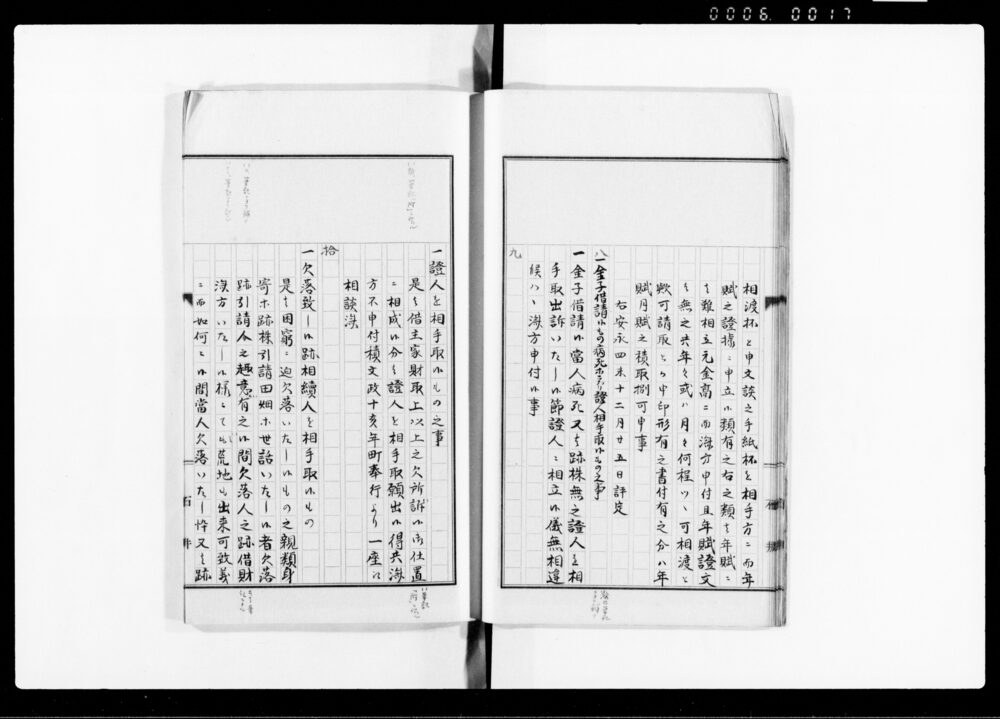 0006.0017
相渡杯と申文談之手紙杯を相手方ニ而年
賦之證據ニ申立候類有之右之類者年賦ニ
者難相立元金高ニ而済方申付且年賦證文
者無之共年々或ハ月々何程ツヽ可相渡と
歟可請取とゟ申印形有之書付有之分ハ年
賦月賦之積取捌可申事
右安永四未十二月廿五日評定
八
一金子借請候もの病死ホニ而證人相手取候もの之事
一金子借請候當人病死又者跡株無之證人を相
手取出訴いたし候節證人ニ相立候儀無相違
候ハヽ済方申付候事
九
一證人を相手取候もの之事
是者借主家財取上以上之欠所訴候御仕置
ニ相成候分者證人を相手取願出候得共済
方不申付積文政十亥年町奉行ゟ一座江
相談済
拾
一欠落致し候跡相續人を相手取候もの
是者困窮ニ迫欠落いたし候もの之親類身
寄ホ跡株引請田畑ホ世話いたし候者欠落
跡引請人之趣意有之候間欠落人之跡借財
済方いたし候様ニ而者荒地も出来可致義
ニ而如何ニ候間當人欠落いたし悴又者跡